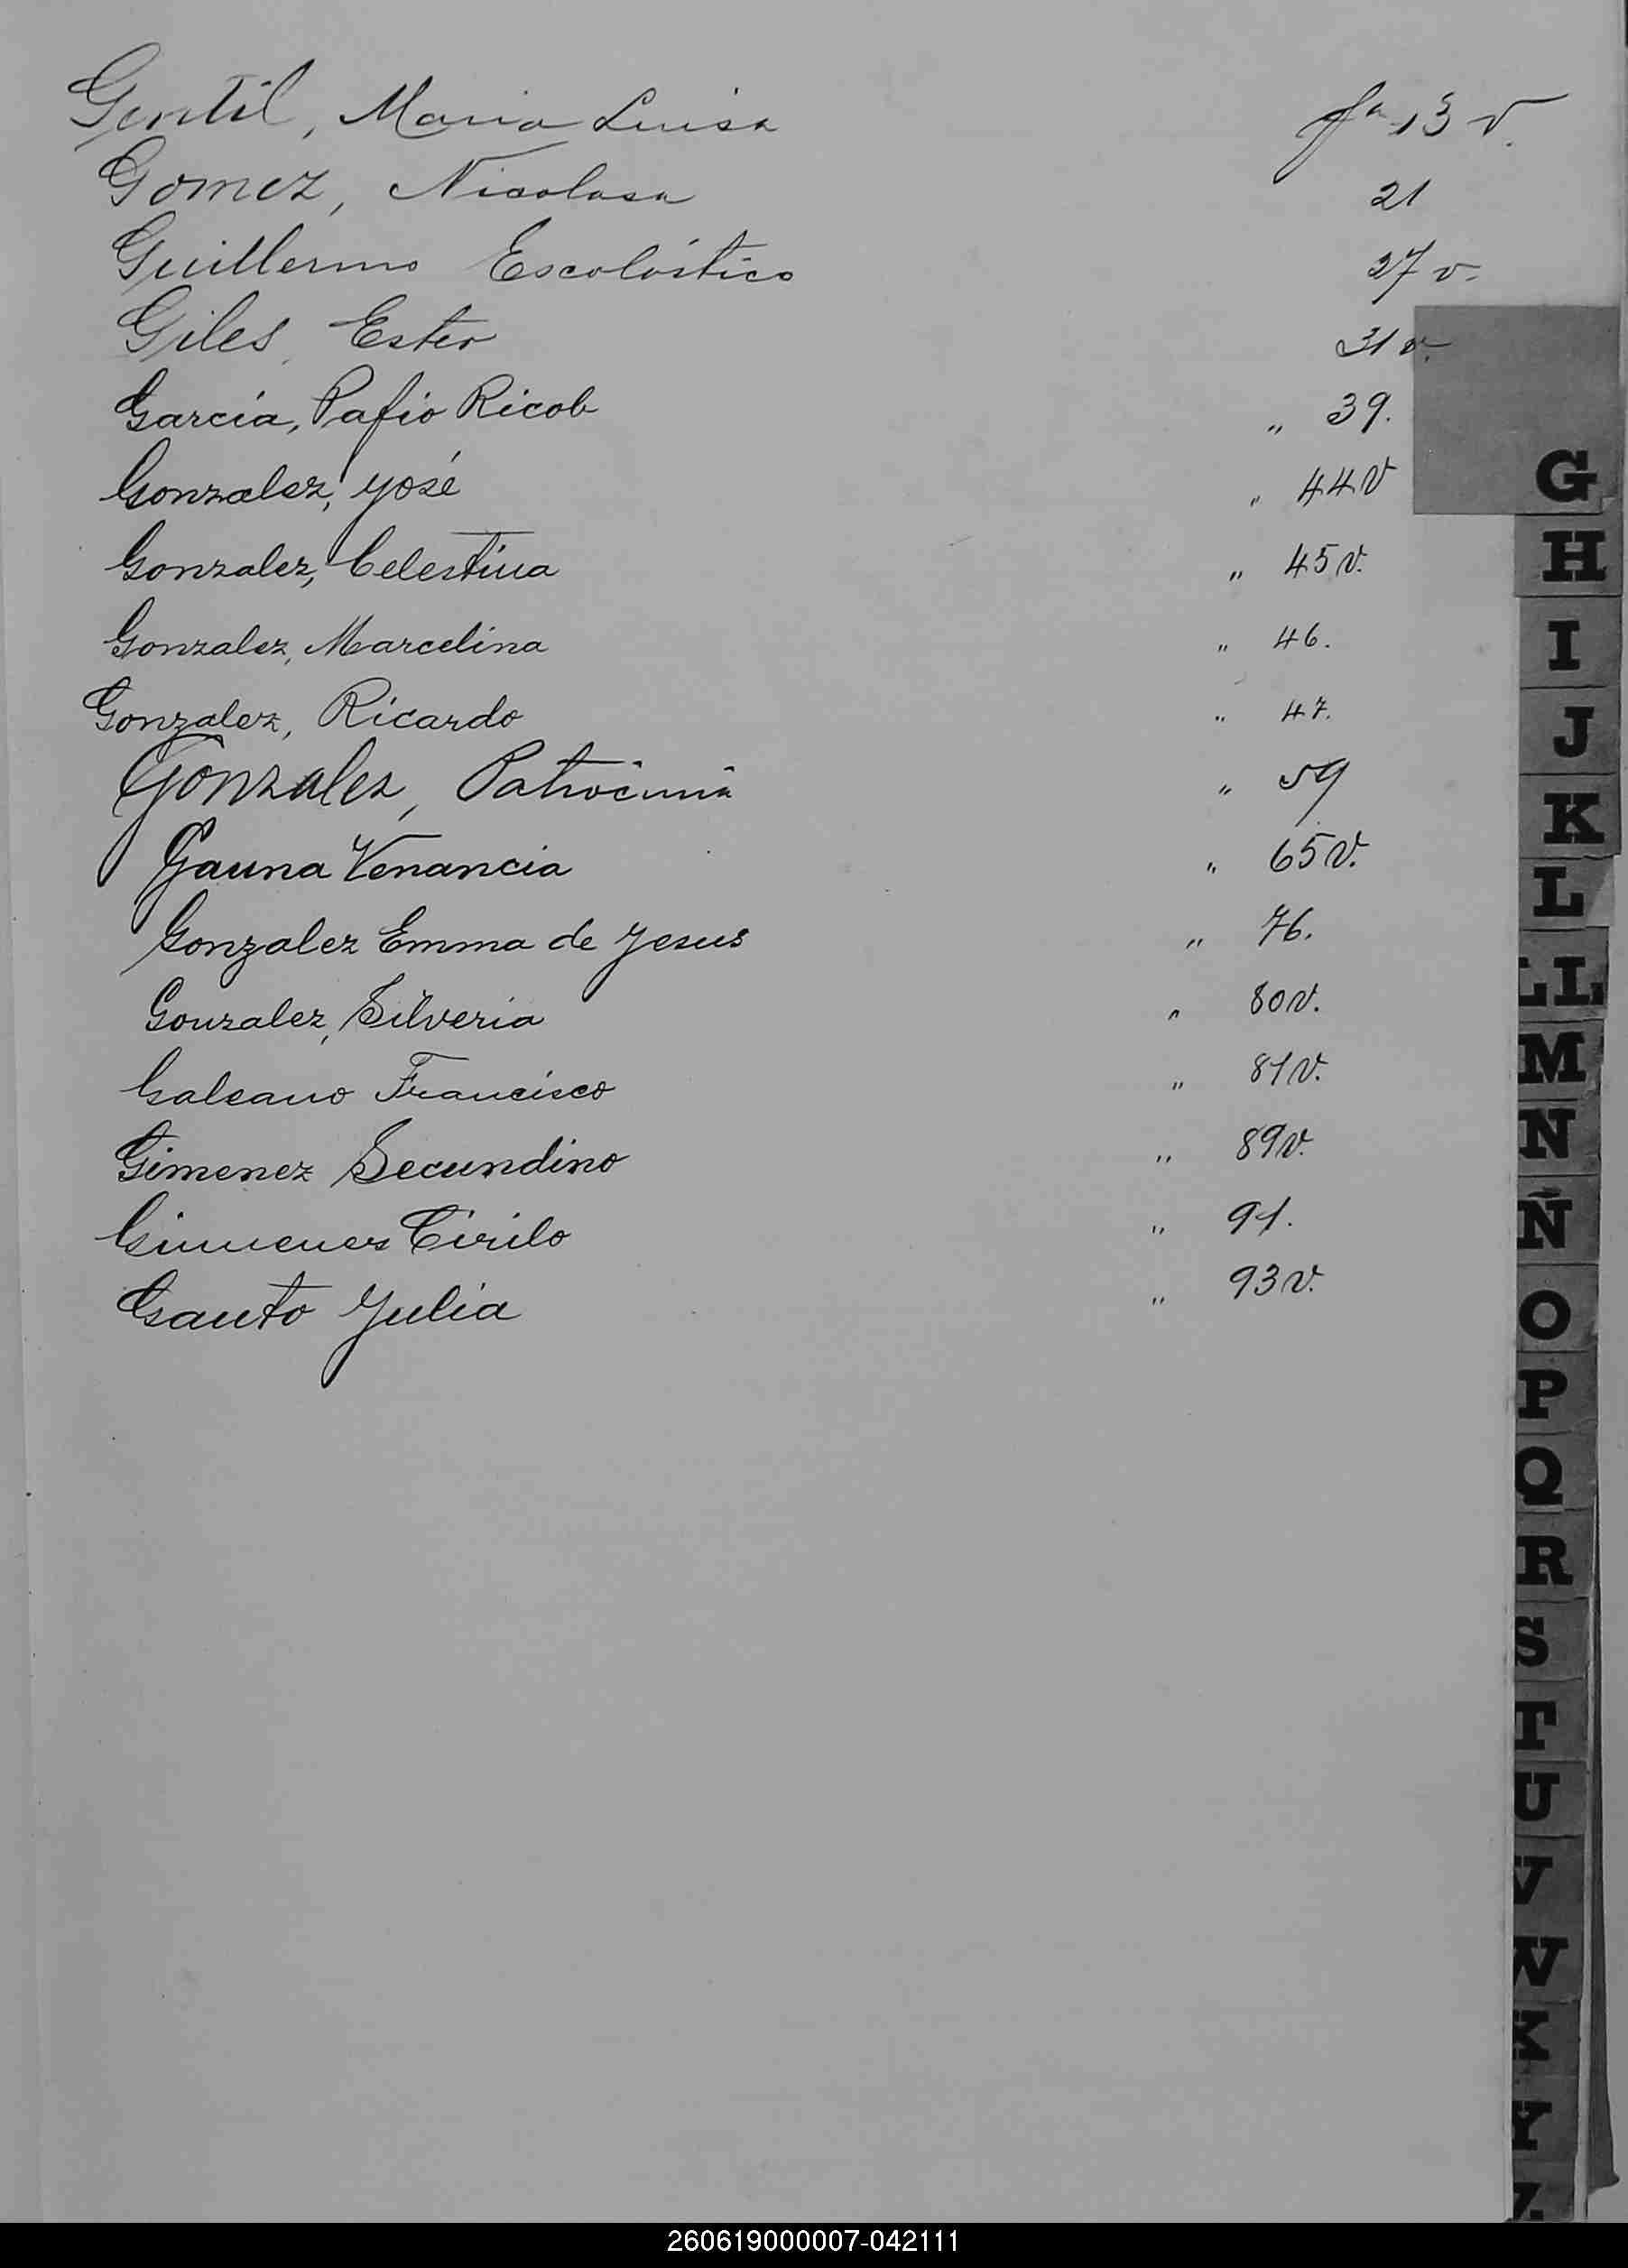 Gentil, Maria Luisa fs 13 v.
Gomez, Nicolasa 21
Guillermo Escolástico 27 v.
Giles, Ester 31 v.
García, Pafio Ricob „ 39.
Gonzalez, José „ 44 v
Gonzalez, Celestina „ 45 v.
Gonzalez, Marcelina „ 46.
Gonzalez, Ricardo „ 47.
Gonzalez, Patrocinia „ 59
Gauna Venancia „ 65 v.
Gonzalez Emma de Jesus „ 76.
Gonzalez, Silveria „ 80 v.
Galeano Francisco „ 81 v.
Gimenez Secundino „ 89 v.
Gimenes Cirilo „ 91.
Gauto Julia „ 93 v.
G
H
I
J
K
L
LL
M
N
Ñ
O
P
Q
R
S
T
U
V
W
X
Y
Z
260619000007-042111